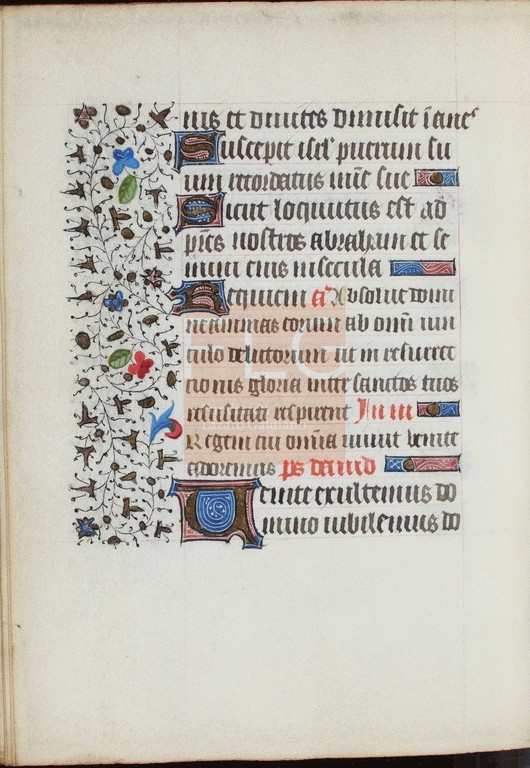 nis et divites dimisit īanes
Suscepit isrl' puerum su
um recordatus mīe sue
Sicut loquutus est ad
pr̄es nostros abraham et se
mini eius in secula
Requiem a᷑ Absolve domi
ne animas eorum ab omī vin
culo delictorum ut in resurrec
tionis gloria inter sanctos tuos
resusitati respirent In īu
Regem cui omīa vivut venite
adoremus ps david
Venite exultemus do
mino iubilemus do
FLG
Lázaro Galdiano